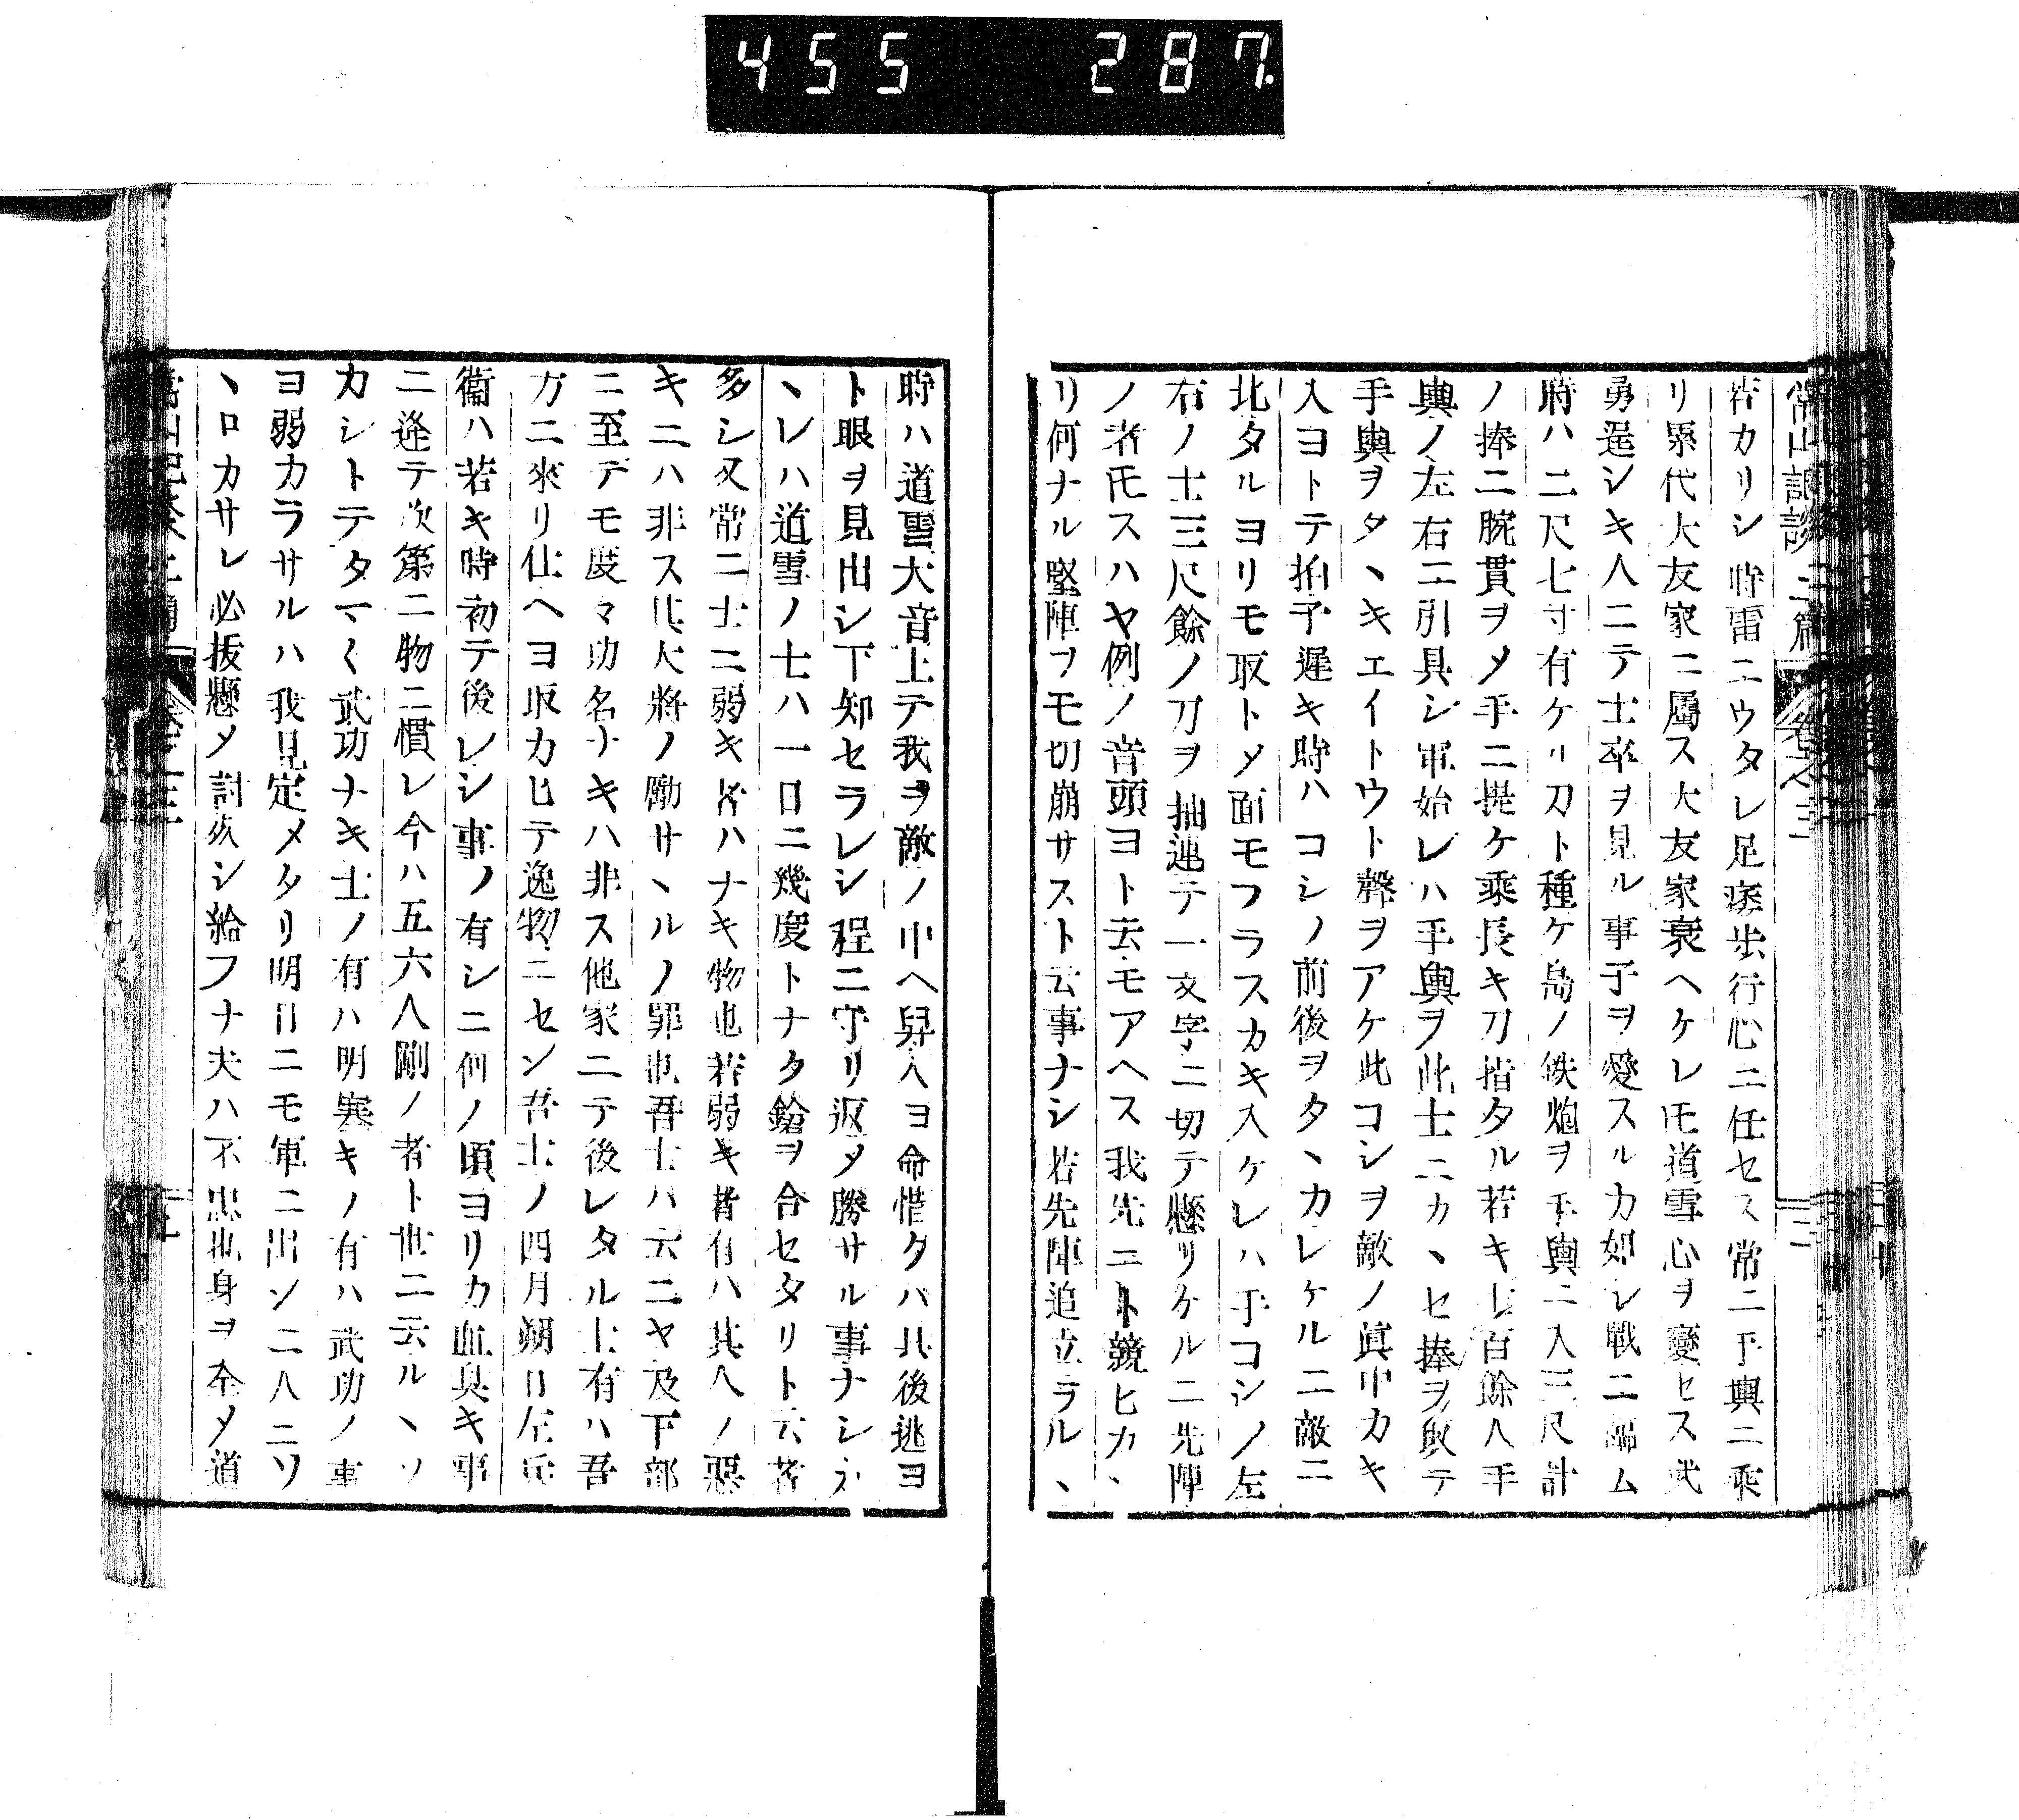 455 287
若カリシ時雷ニウタレ足痿歩行心ニ任セス常ニ手輿ニ乘
リ累代大友家ニ屬ス大友家衰ヘケレ𪜈道雪心ヲ變セス武
勇逞シキ人ニテ士卒ヲ見ル事子ヲ愛スルカ如シ戰ニ臨ム
時ハ二尺七寸有ケル刀ト種ケ島ノ鉄炮ヲ手輿ニ入三尺計
ノ捧ニ腕貫ヲメ手ニ提ケ乘長キ刀指タル若キ士百餘人手
輿ノ左右ニ引具シ軍始レハ手輿ヲ此士ニカヽセ捧ヲ取テ
手輿ヲタヽキエイトウト聲ヲアケ此コシヲ敵ノ眞中カキ
入ヨトテ拍子遲キ時ハコシノ前後ヲタヽカレケルニ敵ニ
北タルヨリモ取トメ面モフラスカキ入ケレハ手コシノ左
右ノ士三尺餘ノ刀ヲ抽連テ一文字ニ切テ懸リケルニ先陣
ノ者𪜈スハヤ例ノ音頭ヨト云モアヘス我先ニト競ヒカヽ
リ何ナル堅陣ヲモ切崩サスト云事ナシ若先陣追立ラルヽ
時ハ道雪大音上テ我ヲ敵ノ中ヘ舁入ヨ命惜クハ其後逃ヨ
ト眼ヲ見出シ下知セラレシ程ニ守リ返メ勝サル事ナシ
ヽレハ道雪ノ士ハ一日ニ幾度トナク鎗ヲ合セタリト云者
多シ又常ニ士ニ弱キ者ハナキ物也若弱キ者有ハ其人ノ惡
キニハ非ス其大將ノ勵サヽルノ罪也吾士ハ云ニヤ及下部
ニ至テモ度々功名ナキハ非ス他家ニテ後レタル士有ハ吾
方ニ來リ仕ヘヨ取カヒテ逸物ニセン吾士ノ四月朔日左兵
衞ハ若キ時初テ後レシ事ノ有シニ何ノ頃ヨリカ血臭キ事
ニ逢テ次第ニ物ニ慣レ今ハ五六人剛ノ者ト世ニ云ルヽソ
カシトテタマ〱武功ナキ士ノ有ハ明塞キノ有ハ武功ノ事
ヨ弱カラサルハ我見定メタリ明日ニモ軍ニ出ンニ人ニソ
ヽロカサレ必抜懸メ討死シ給フナ夫ハ不忠也身ヲ全メ道